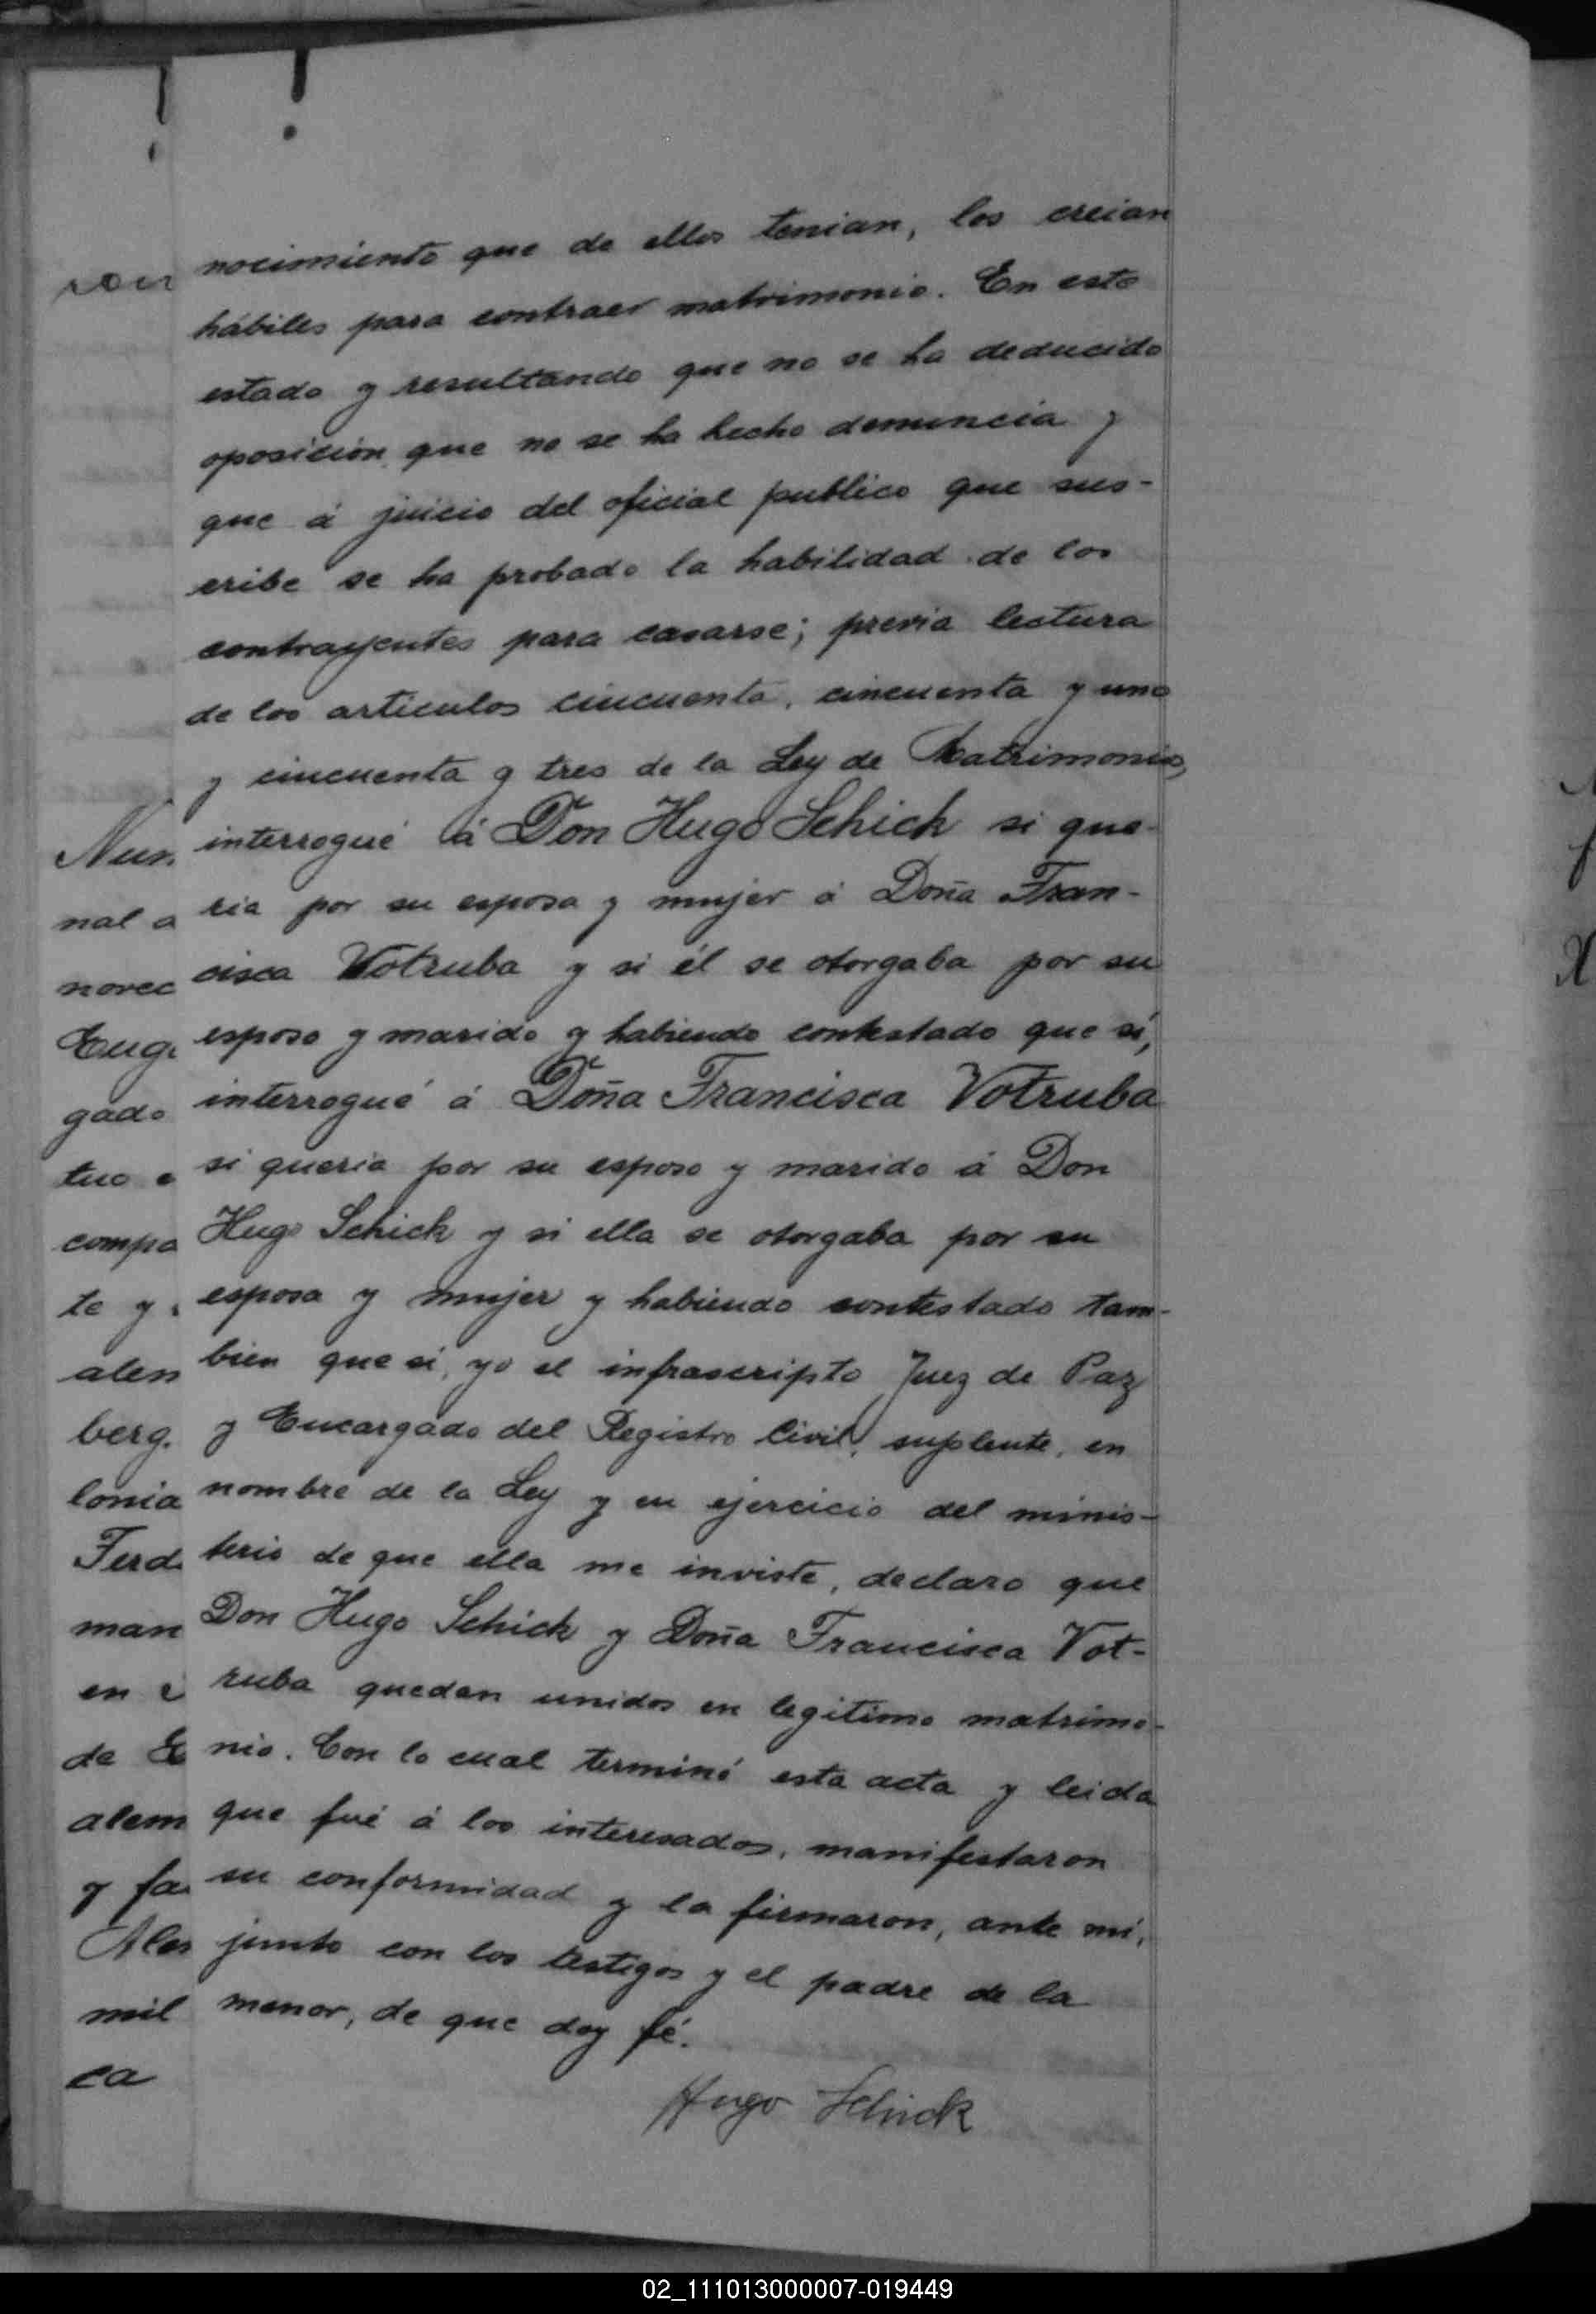 nocimiento que de ellos tenian, los creian
hábiles para contraer matrimonio. En este
estado y resultando que no se ha deducido
oposición, que no se ha hecho denuncia y
que á juicio del oficial publico que sus-
cribe se ha probado la habilidad de los
contrayentes para casarse; previa lectura
de los articulos cincuenta, cincuenta y uno
y cincuenta y tres de la Ley de Matrimonio,
interrogué á Don Hugo Schick si que-
ria por su esposa y mujer á Doña Fran-
cisca Votruba y si él se otorgaba por su
esposo y marido y habiendo contestado que sí,
interrogué á Doña Francisca Votruba
si queria por su esposo y marido á Don
Hugo Schick y si ella se otorgaba por su
esposa y mujer y habiendo contestado tam-
bien que si, yo el infrascripto Juez de Paz
y Encargado del Registro Civil, suplente, en
nombre de la Ley y en ejercicio del minis-
terio de que ella me inviste, declaro que
Don Hugo Schick y Doña Francisca Vot-
ruba quedan unidos en legitimo matrimo-
nio. Con lo cual terminó esta acta y leida
que fué á los interesados, manifestaron
su conformidad y la firmaron, ante mí,
junto con los testigos y el padre de la
menor, de que doy fé.
Hugo Schick
ron
Nun
nal a
novec
Euge
gado
tuo
compa
te y
alem
berg.
lonia
Ferd
man
en
de
alem
y fa
Ales
mil
ca
02_111013000007-019449